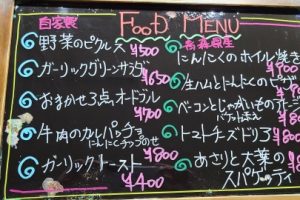 FOOD MENU
自家製
野菜のピクルス ¥500
ガーリックグリーンサラダ
¥650
おまかせ3点オードブル
¥700
牛肉のカルパッチョ
にんにくチップのせ
¥800
ガーリックトースト
¥400
青森県産
にんにくのホイル焼き
生ハムとにんにくの
ベーコンとじゃがいもの
バケット添え
トマトチーズドリア
¥800
あさりと大葉の
スパゲッティ